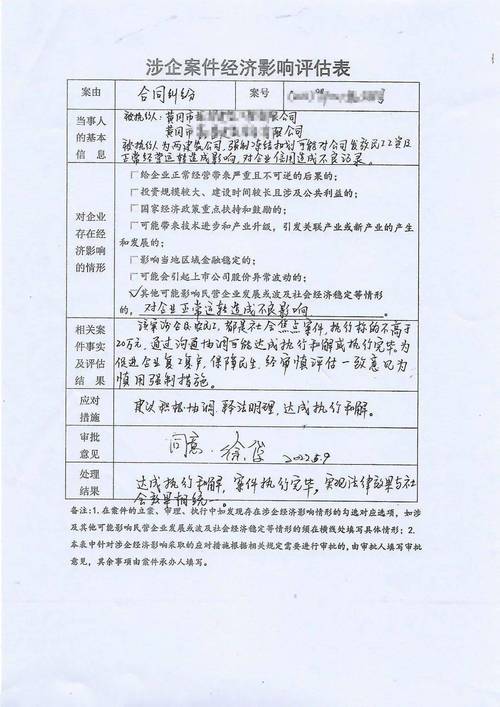 涉企案件经济影响评估表
案由 合同纠纷 案号
当事人的基本信息
被执行人:黄冈市 公司
黄冈市 有限公司
被执行人为两建筑公司,强制冻结扣划可能对公司发放民工工资及
正常经营运转造成影响,对企业信用造成不良记录。
对企业存在经济影响的情形
□给企业正常经营带来严重且不可逆的后果的;
□投资规模较大、建设时间较长且涉及公共利益的;
□国家经济政策重点扶持和鼓励的;
□可能带来技术进步和产业升级,引发关联产业或新产业的产生
和发展的;
□影响当地区域金融稳定的;
□可能会引起上市公司股价异常波动的;
☑其他可能影响民营企业发展或波及社会经济稳定等情形
的,对企业正常运转造成不良影响。
相关案件事实及评估结果
该案涉企及农民工,都是社会焦点案件,执行标的不高于
20万元,通过沟通协调可能达成执行和解或执行完毕。为
促进企业复工复产,保障民生,经审慎评估一致意见为
慎用强制措施。
应对措施
建议积极协调、释法明理,达成执行和解。
审批意见
同意 徐 2022.5.9
处理结果
达成执行和解,案件执行完毕,实现法律效果与社
会效果相统一。
备注:1.在案件的立案、审理、执行中如发现存在涉企经济影响情形的勾选对应选项,如涉
及其他可能影响民营企业发展或波及社会经济稳定等情形的须在横线处填写具体情形;2.
本表中针对涉企经济影响采取的应对措施根据相关规定需要进行审批的,由审批人填写审批
意见,其余事项由案件承办人填写。